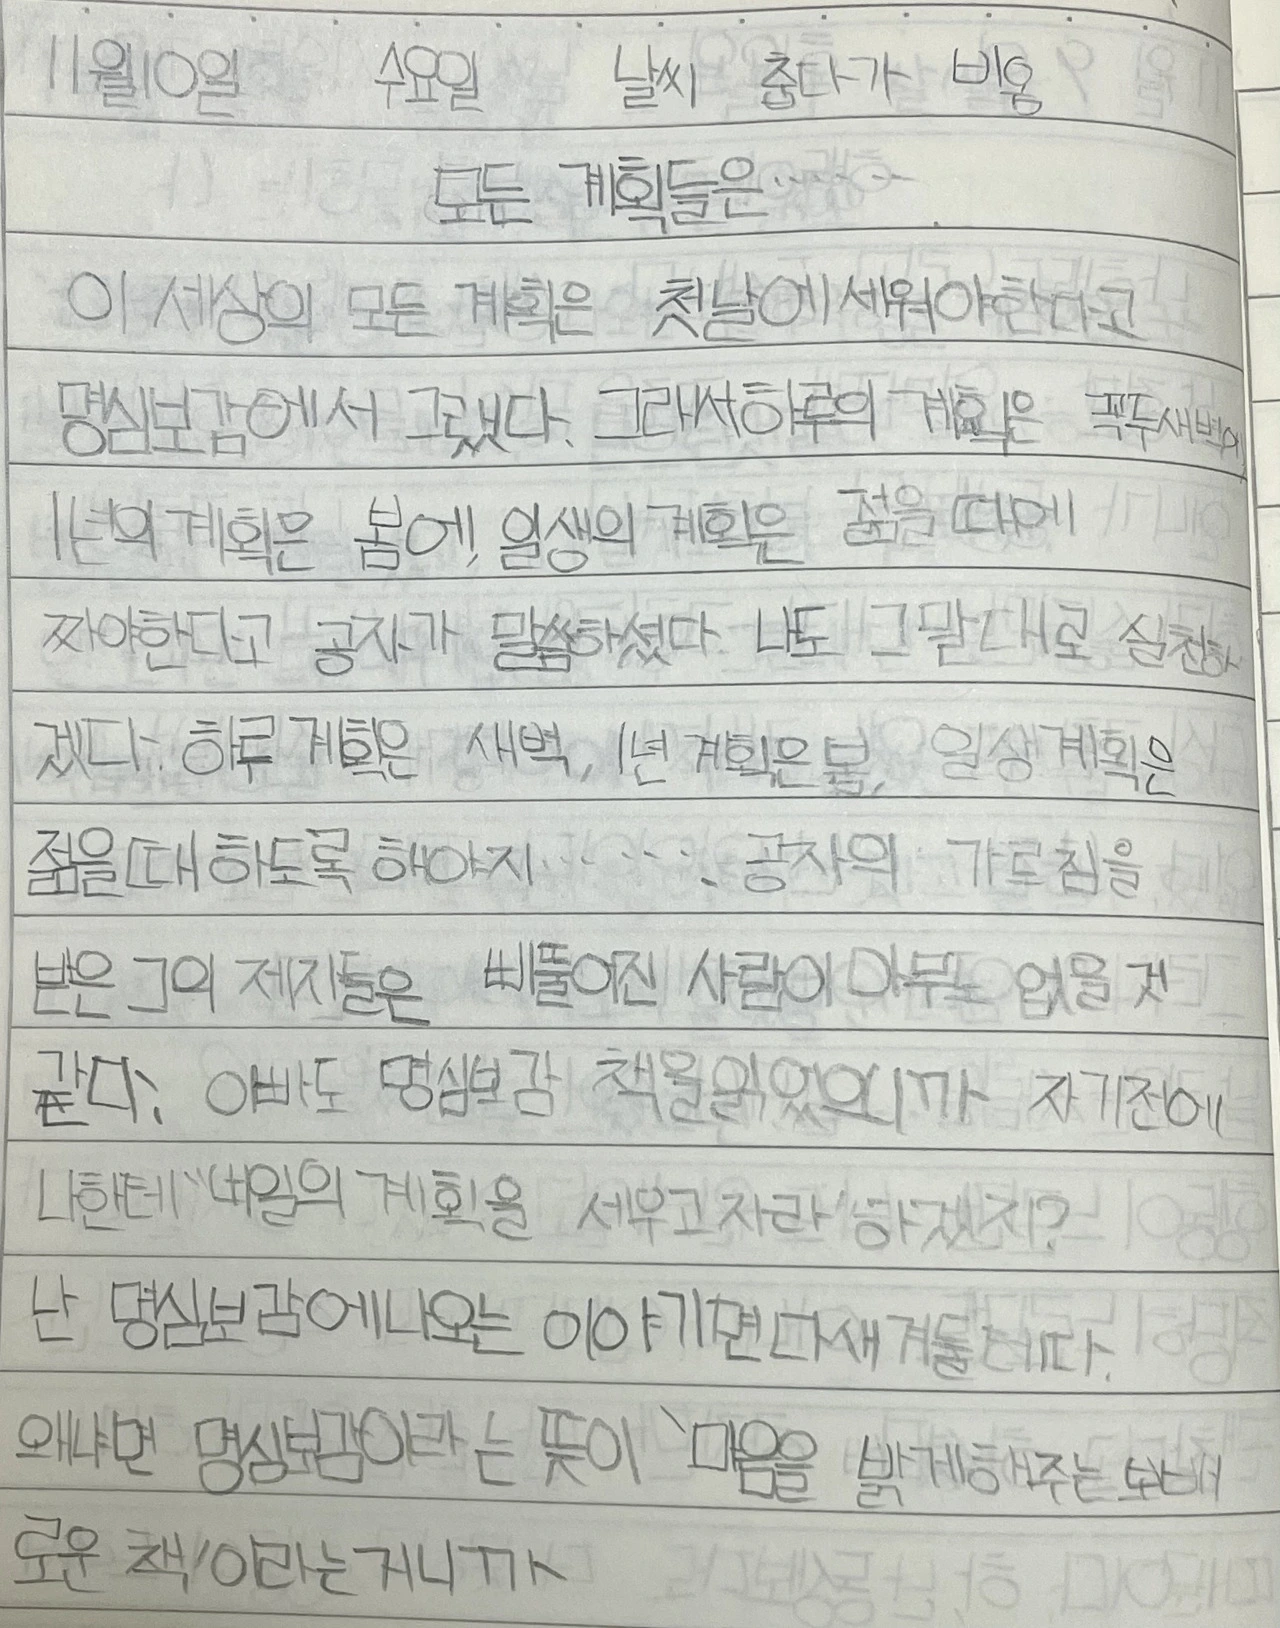 11월10일 수요일 날씨 춥다가 비옴
모든 계획들은.....
이 세상의 모든 계획은 첫날에세워야한다고
명심보감에서 그랬다. 그래서하루의 계획은 꼭두새벽에
1년의 계획은 봄에, 일생의 계획은 젊을 때에
짜야한다고 공자가 말씀하셨다. 나도 그말대로 실천하
겠다. 하루 계획은 새벽, 1년 계획은 봄, 일생계획은
젊을때 하도록 해야지...... 공자의 가르침을
받은 그의 제자들은 삐뚤어진 사람이 아무도 없을 것
같다. 아빠도 명심보감 책을읽었으니까 자기전에
나한테 '내일의 계획을 세우고자라' 하겠지?
난 명심보감에나오는 이야기면다새겨둘테다.
왜냐면 명심보감이라는 뜻이 '마음을 밝게해주는 보배
로운 책'이라는거니까